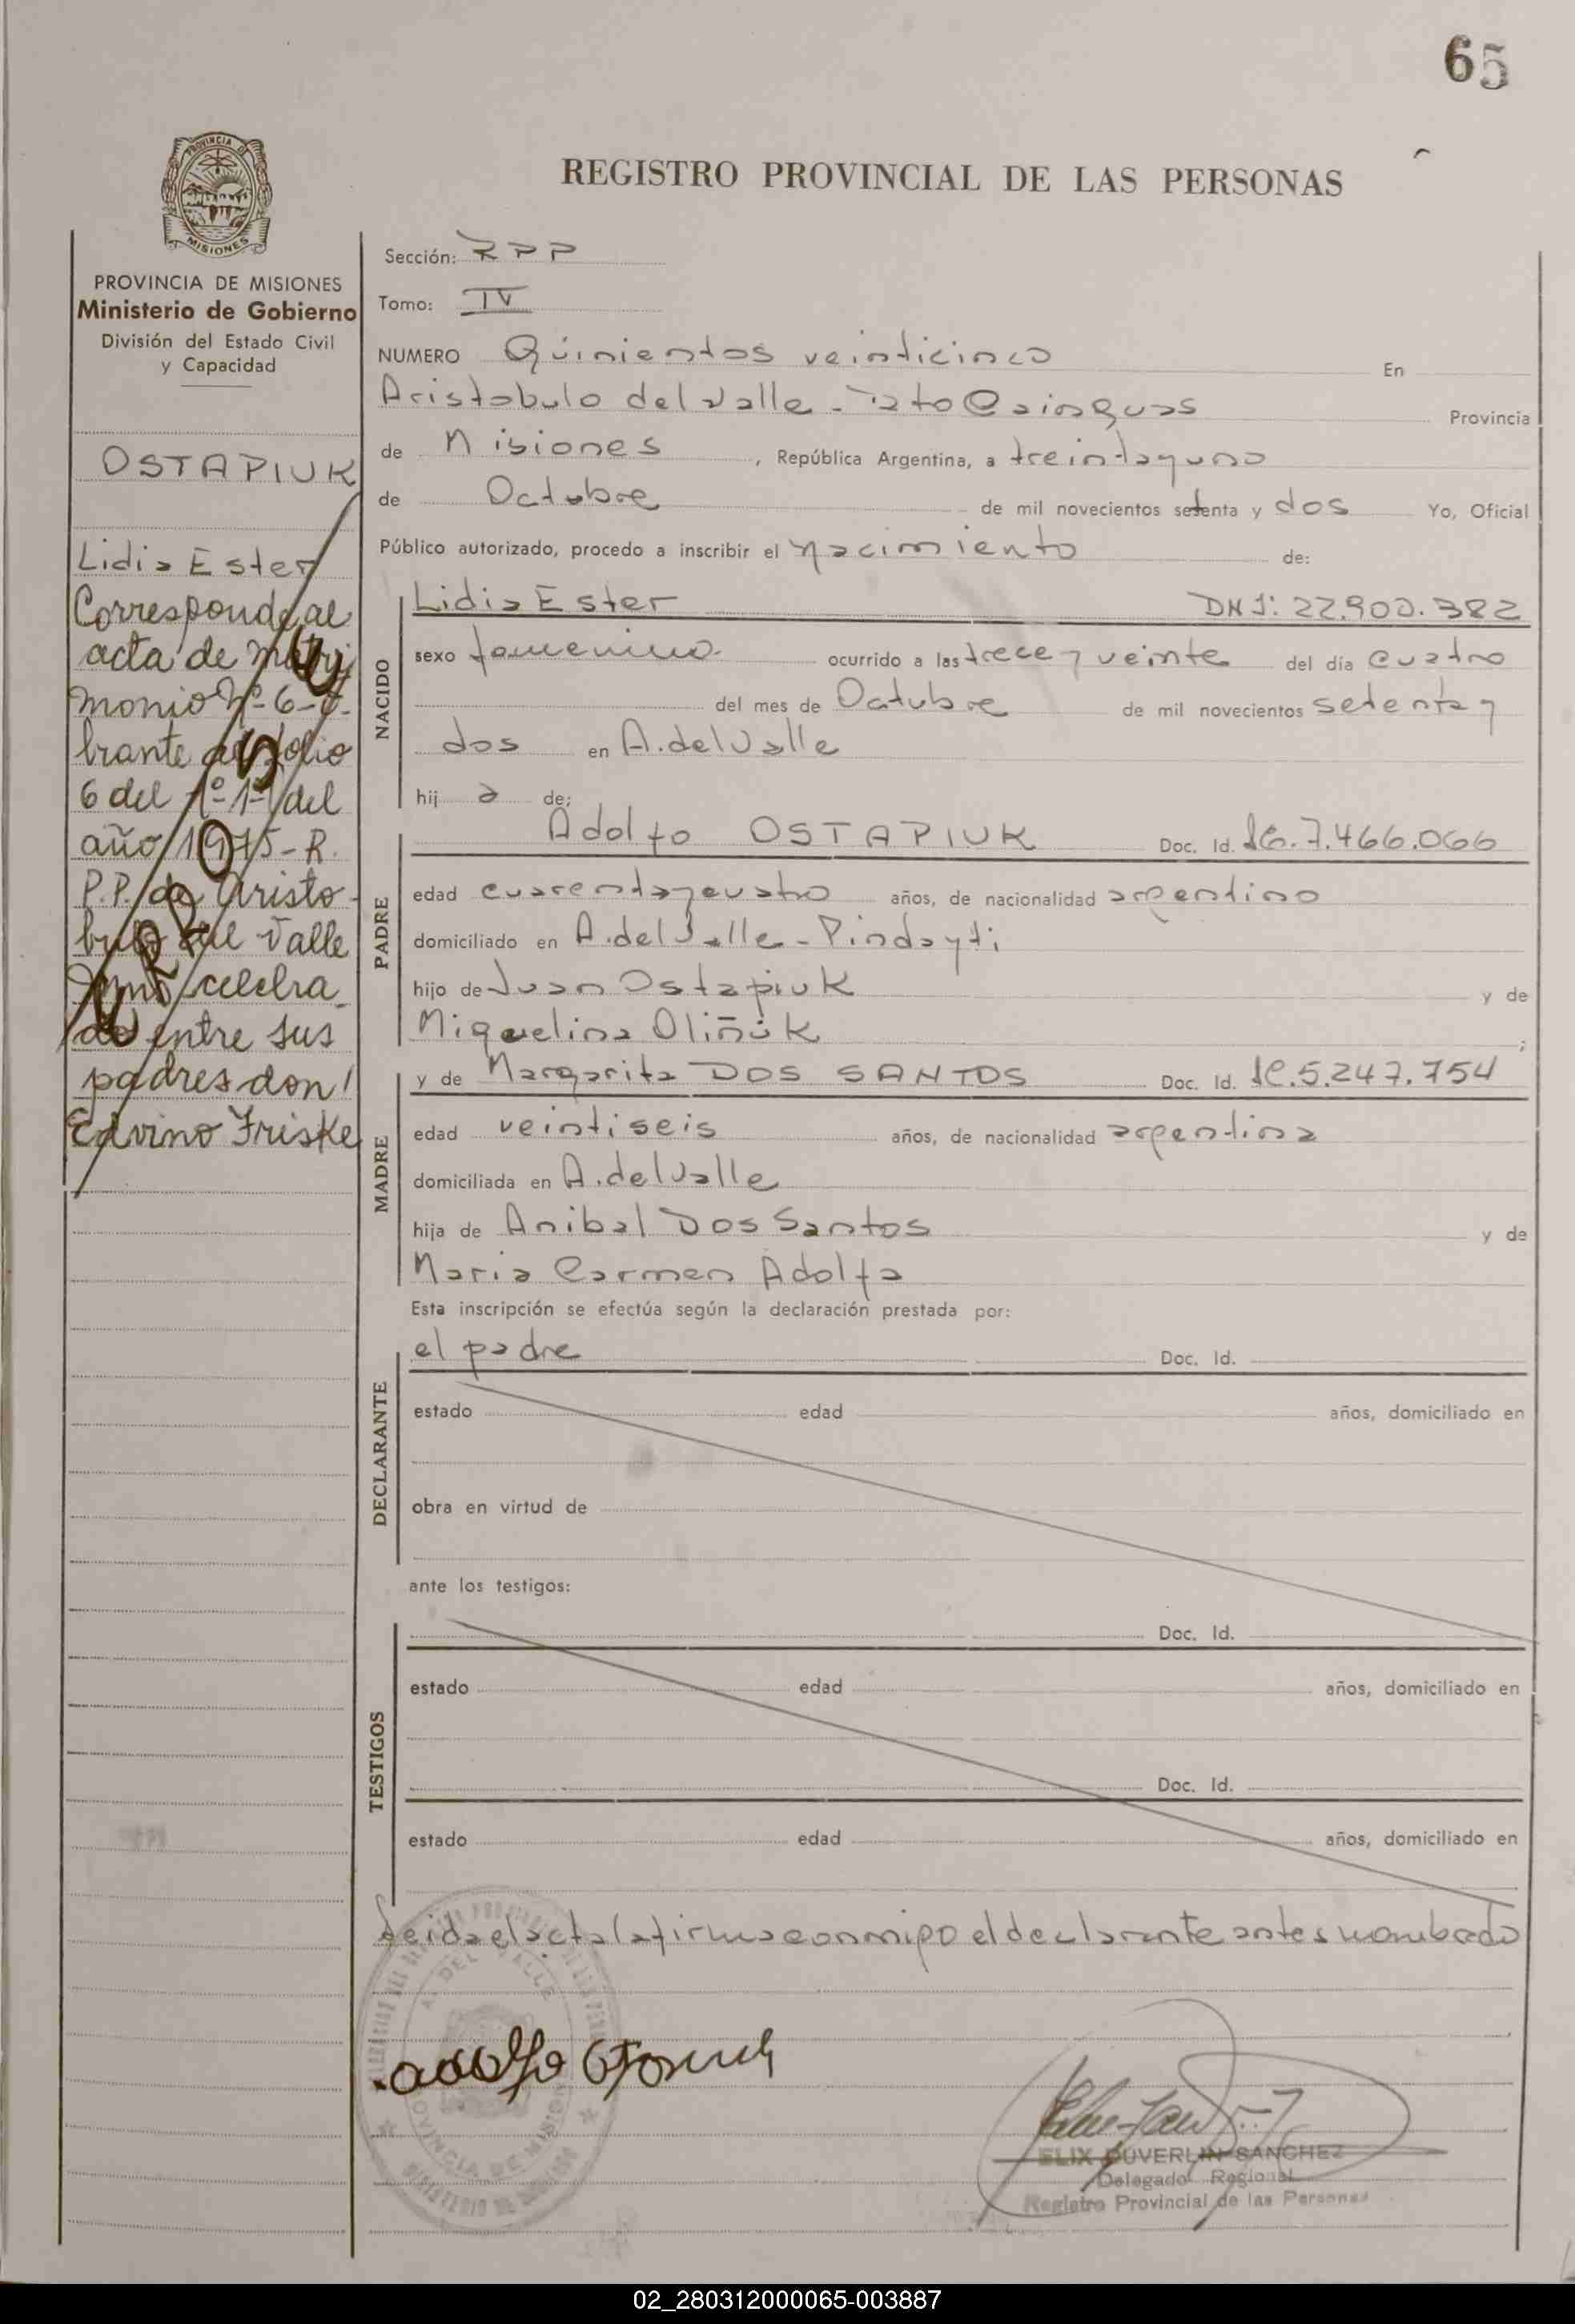 65
PROVINCIA DE
MISIONES
REGISTRO PROVINCIAL DE LAS PERSONAS
PROVINCIA DE MISIONES
Ministerio de Gobierno
División del Estado Civil
y Capacidad
OSTAPIUK
Lidia Ester
Corresponde al
acta de matri
monio Nº 6- o-
brante al folio
6 del Tº 1º del
año 1975- R.
P.P. de Aristo-
bulo del Valle
celebra
do entre sus
padres don!
Edvino Friske
Sección: RPP
Tomo: IV
NUMERO Quinientos veinticinco En
Aristobulo del Valle - Dto Cainguas Provincia
de Misiones, República Argentina, a treintayuno
de Octubre de mil novecientos setenta y dos Yo, Oficial
Público autorizado, procedo a inscribir el nacimiento de:
NACIDO
Lidia Ester DNI: 22.900.382
sexo femenino. ocurrido a las trece y veinte del día cuatro
del mes de Octubre de mil novecientos setenta y
dos en A. del Valle
hij a de:
PADRE
Adolfo OSTAPIUK Doc. Id. 7.466.066
edad cuarentaycuatro años, de nacionalidad argentino
domiciliado en A. del Valle - Pindayti
hijo de Juan Ostapiuk y de
Miguelina Oliñuk ;
MADRE
y de Margarita DOS SANTOS Doc. Id. 5.247.754
edad veintiseis años, de nacionalidad argentina
domiciliada en A. del Valle
hija de Anibal Dos Santos y de
Maria Carmen Adolfa
Esta inscripción se efectúa según la declaración prestada por:
DECLARANTE
el padre Doc. Id.
estado edad años, domiciliado en
obra en virtud de
ante los testigos:
TESTIGOS
Doc. Id.
estado edad años, domiciliado en
Doc. Id.
estado edad años, domiciliado en
Leida el acta la firma conmigo el declarante antes nombrado
A. DEL VALLE
PROVINCIA DE MISIONES
Adolfo
ELIX DUVERLIN SANCHEZ
Delegado Regional
Registro Provincial de las Personas
02_280312000065-003887